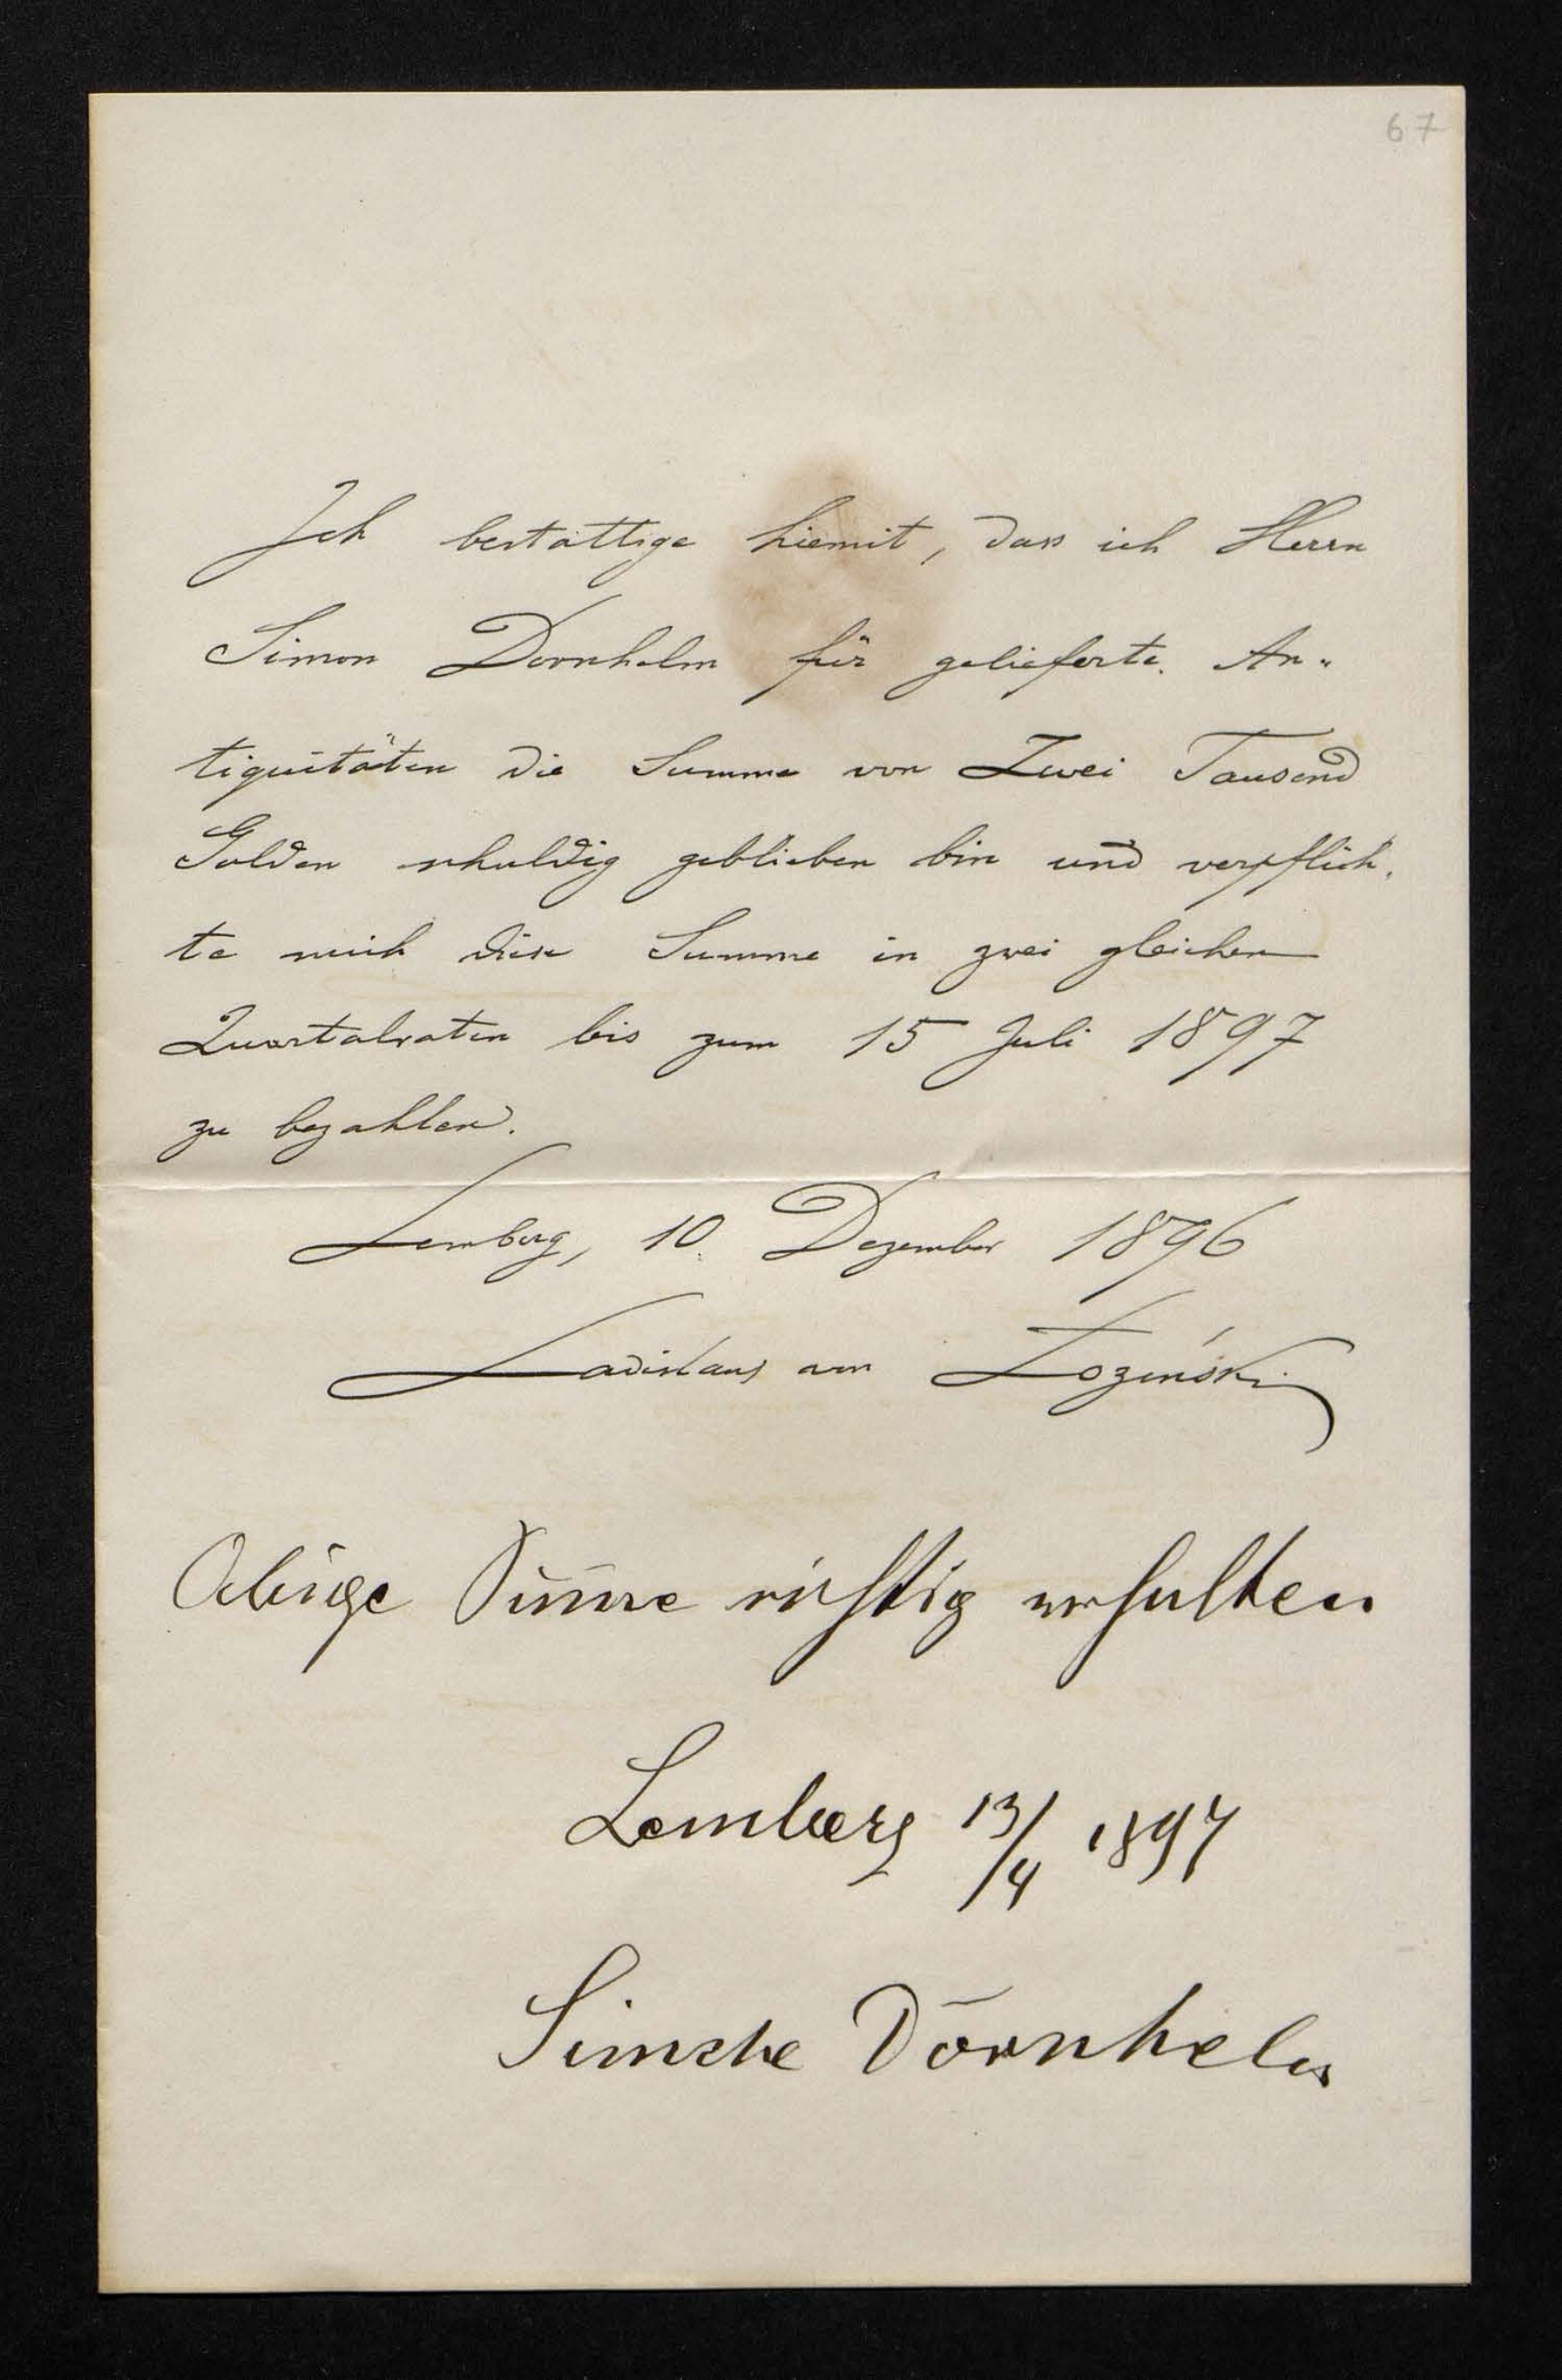 67
Ich bestättige hiemit, dass ich Herrn
Simon Dornhelm für gelieferte An-
tiquitäten die Summe von Zwei Tausend
Gulden schuldig geblieben bin und verpflich-
te mich diese Summe in zwei gleichen
Quartalraten bis zum 15 Juli 1897
zu bezahlen.
Lemberg, 10. Dezember 1896
Ladislaus von Łoziński
Obige Sum̅e richtig erhalten
Lemberg 13/4 1897
Simche Dornhelm